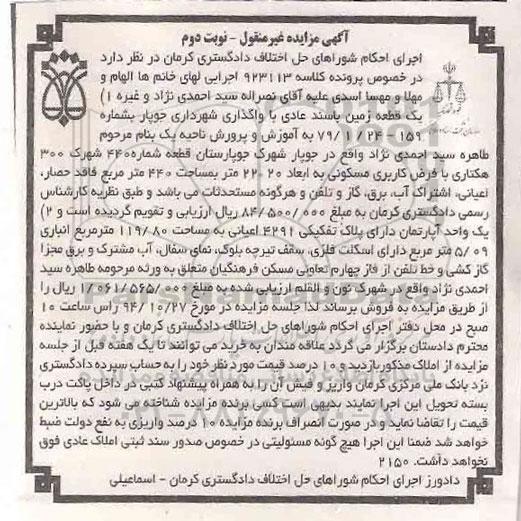 آگهی مزایده غیرمنقول - نوبت دوم
اجرای احکام شوراهای حل اختلاف دادگستری کرمان در نظر دارد
در خصوص پرونده کلاسه ۹۲۳۱۱۳ اجرایی لهای خانم ها الهام و
مهلا و مهسا اسدی علیه آقای نصراله سید احمدی نژاد و غیره ۱)
یک قطعه زمین باسند عادی با واگذاری شهرداری جوپار بشماره
۱۵۹-۷۹/۱/۲۴ به آموزش و پرورش ناحیه یک بنام مرحوم
طاهره سید احمدی نژاد واقع در جوپار شهرک جوپارستان قطعه شماره۴۴۰ شهرک ۳۰۰
هکتاری با فرض کاربری مسکونی به ابعاد ۲۰ ۲۲ متر بمساحت ۴۴۰ متر مربع فاقد حصار،
اعیانی، اشتراک آب، برق، گاز و تلفن و هرگونه مستحدثات می باشد و طبق نظریه کارشناس
رسمی دادگستری کرمان به مبلغ ۸۴/۵۰۰/۰۰۰ ریال ارزیابی و تقویم گردیده است و ۲)
یک واحد آپارتمان دارای پلاک تفکیکی ۴۲۹۱ اعیانی به مساحت ۱۱۹/۸۰ مترمربع انباری
۵/۰۹ متر مربع دارای اسکلت فلزی، سقف تیرچه بلوک، نمای سفال، آب مشترک و برق مجزا
گاز کشی و خط تلفن از فاز چهارم تعاونی مسکن فرهنگیان متعلق به ورثه مرحومه طاهره سید
احمدی نژاد واقع در شهرک نون و القلم ارزیابی شده به مبلغ ۱/۰۶۱/۵۶۵/۰۰۰ ریال را
از طریق مزایده به فروش برساند لذا جلسه مزایده در مورخ ۹۴/۱۰/۲۷ راس ساعت ۱۰
صبح در محل دفتر اجرای احکام شوراهای حل اختلاف دادگستری کرمان و با حضور نماینده
محترم دادستان برگزار می گردد علاقه مندان به خرید می توانند تا یک هفته قبل از جلسه
مزایده از املاک مذکوربازدید و ۱۰ درصد قیمت مورد نظر خود را به حساب سپرده دادگستری
نزد بانک ملی مرکزی کرمان واریز و فیش آن را به همراه پیشنهاد کتبی در داخل پاکت درب
بسته تحویل این اجرا نمایند بدیهی است کسی برنده مزایده شناخته می شود که بالاترین
قیمت را تقاضا نماید و در صورت انصراف برنده مزایده ۱۰ درصد واریزی به نفع دولت ضبط
خواهد شد ضمنا این اجرا هیچ گونه مسئولیتی در خصوص صدور سند ثبتی املاک عادی فوق
نخواهد داشت. ۲۱۵۰
دادورز اجرای احکام شوراهای حل اختلاف دادگستری کرمان - اسماعیلی